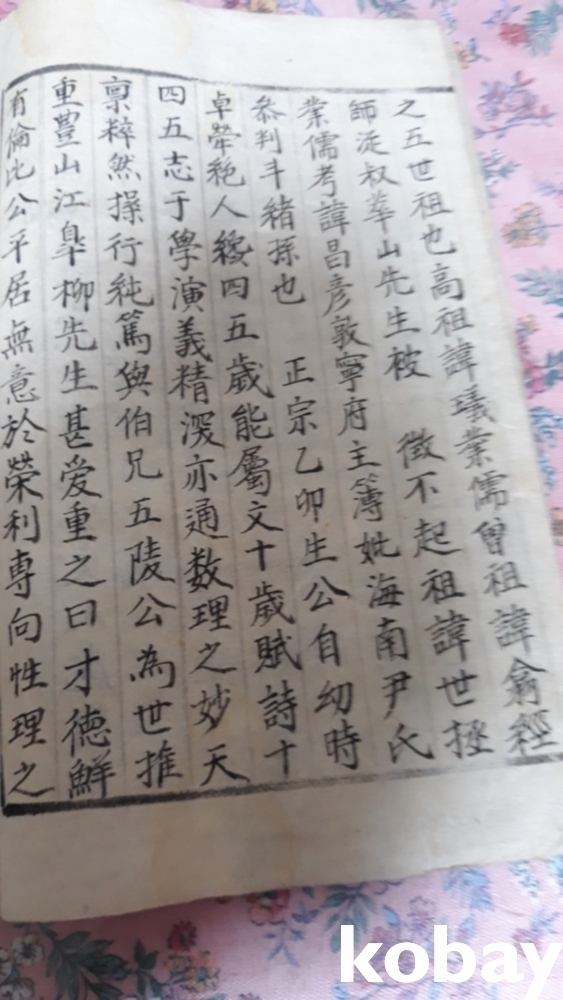 之五世祖也高祖諱㬢業儒曾祖諱翕經
師從叔華山先生被 徵不起祖諱世拯
業儒考諱昌彦敦寧府主簿妣海南尹氏
叅判斗緖孫也 正宗乙卯生公自幼時
卓犖絶人纔四五歲能屬文十歲賦詩十
四五志于學演義精深亦通数理之妙天
禀粹然操行純篤與伯兄五陵公為世推
重豊山江皐柳先生甚爱重之曰才德鮮
有倫比公平居無意於榮利専向性理之
kobay